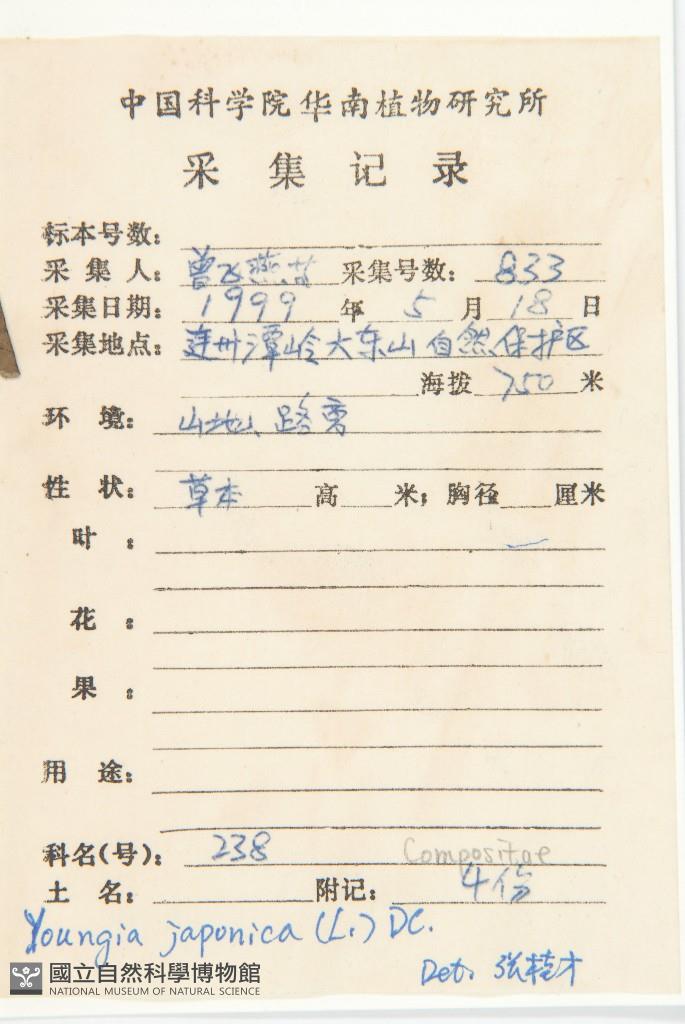 中国科学院华南植物研究所
采集记录
标本号数：
采集人：曾飞燕等 采集号数：833
采集日期：1999年5月18日
采集地点：连州潭岭大东山自然保护区
海拨 750 米
环境：山地、路旁
性状：草本 高 米；胸径 厘米
叶：
花：
果：
用途：
科名(号)：238 Compositae
土名： 附记：4份
Youngia japonica (L.) DC.
Det. 张桂才
國立自然科學博物館
NATIONAL MUSEUM OF NATURAL SCIENCE